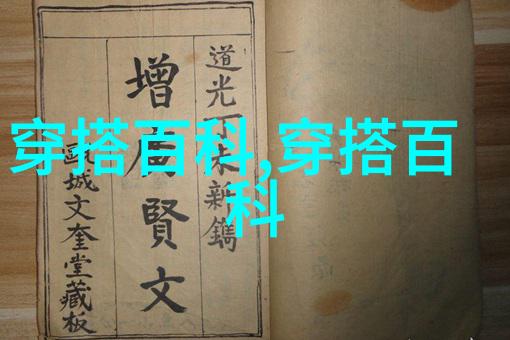 穿搭百科,穿搭百
科
道光丁未新鐫
增廣賢文
甌城文奎堂藏板